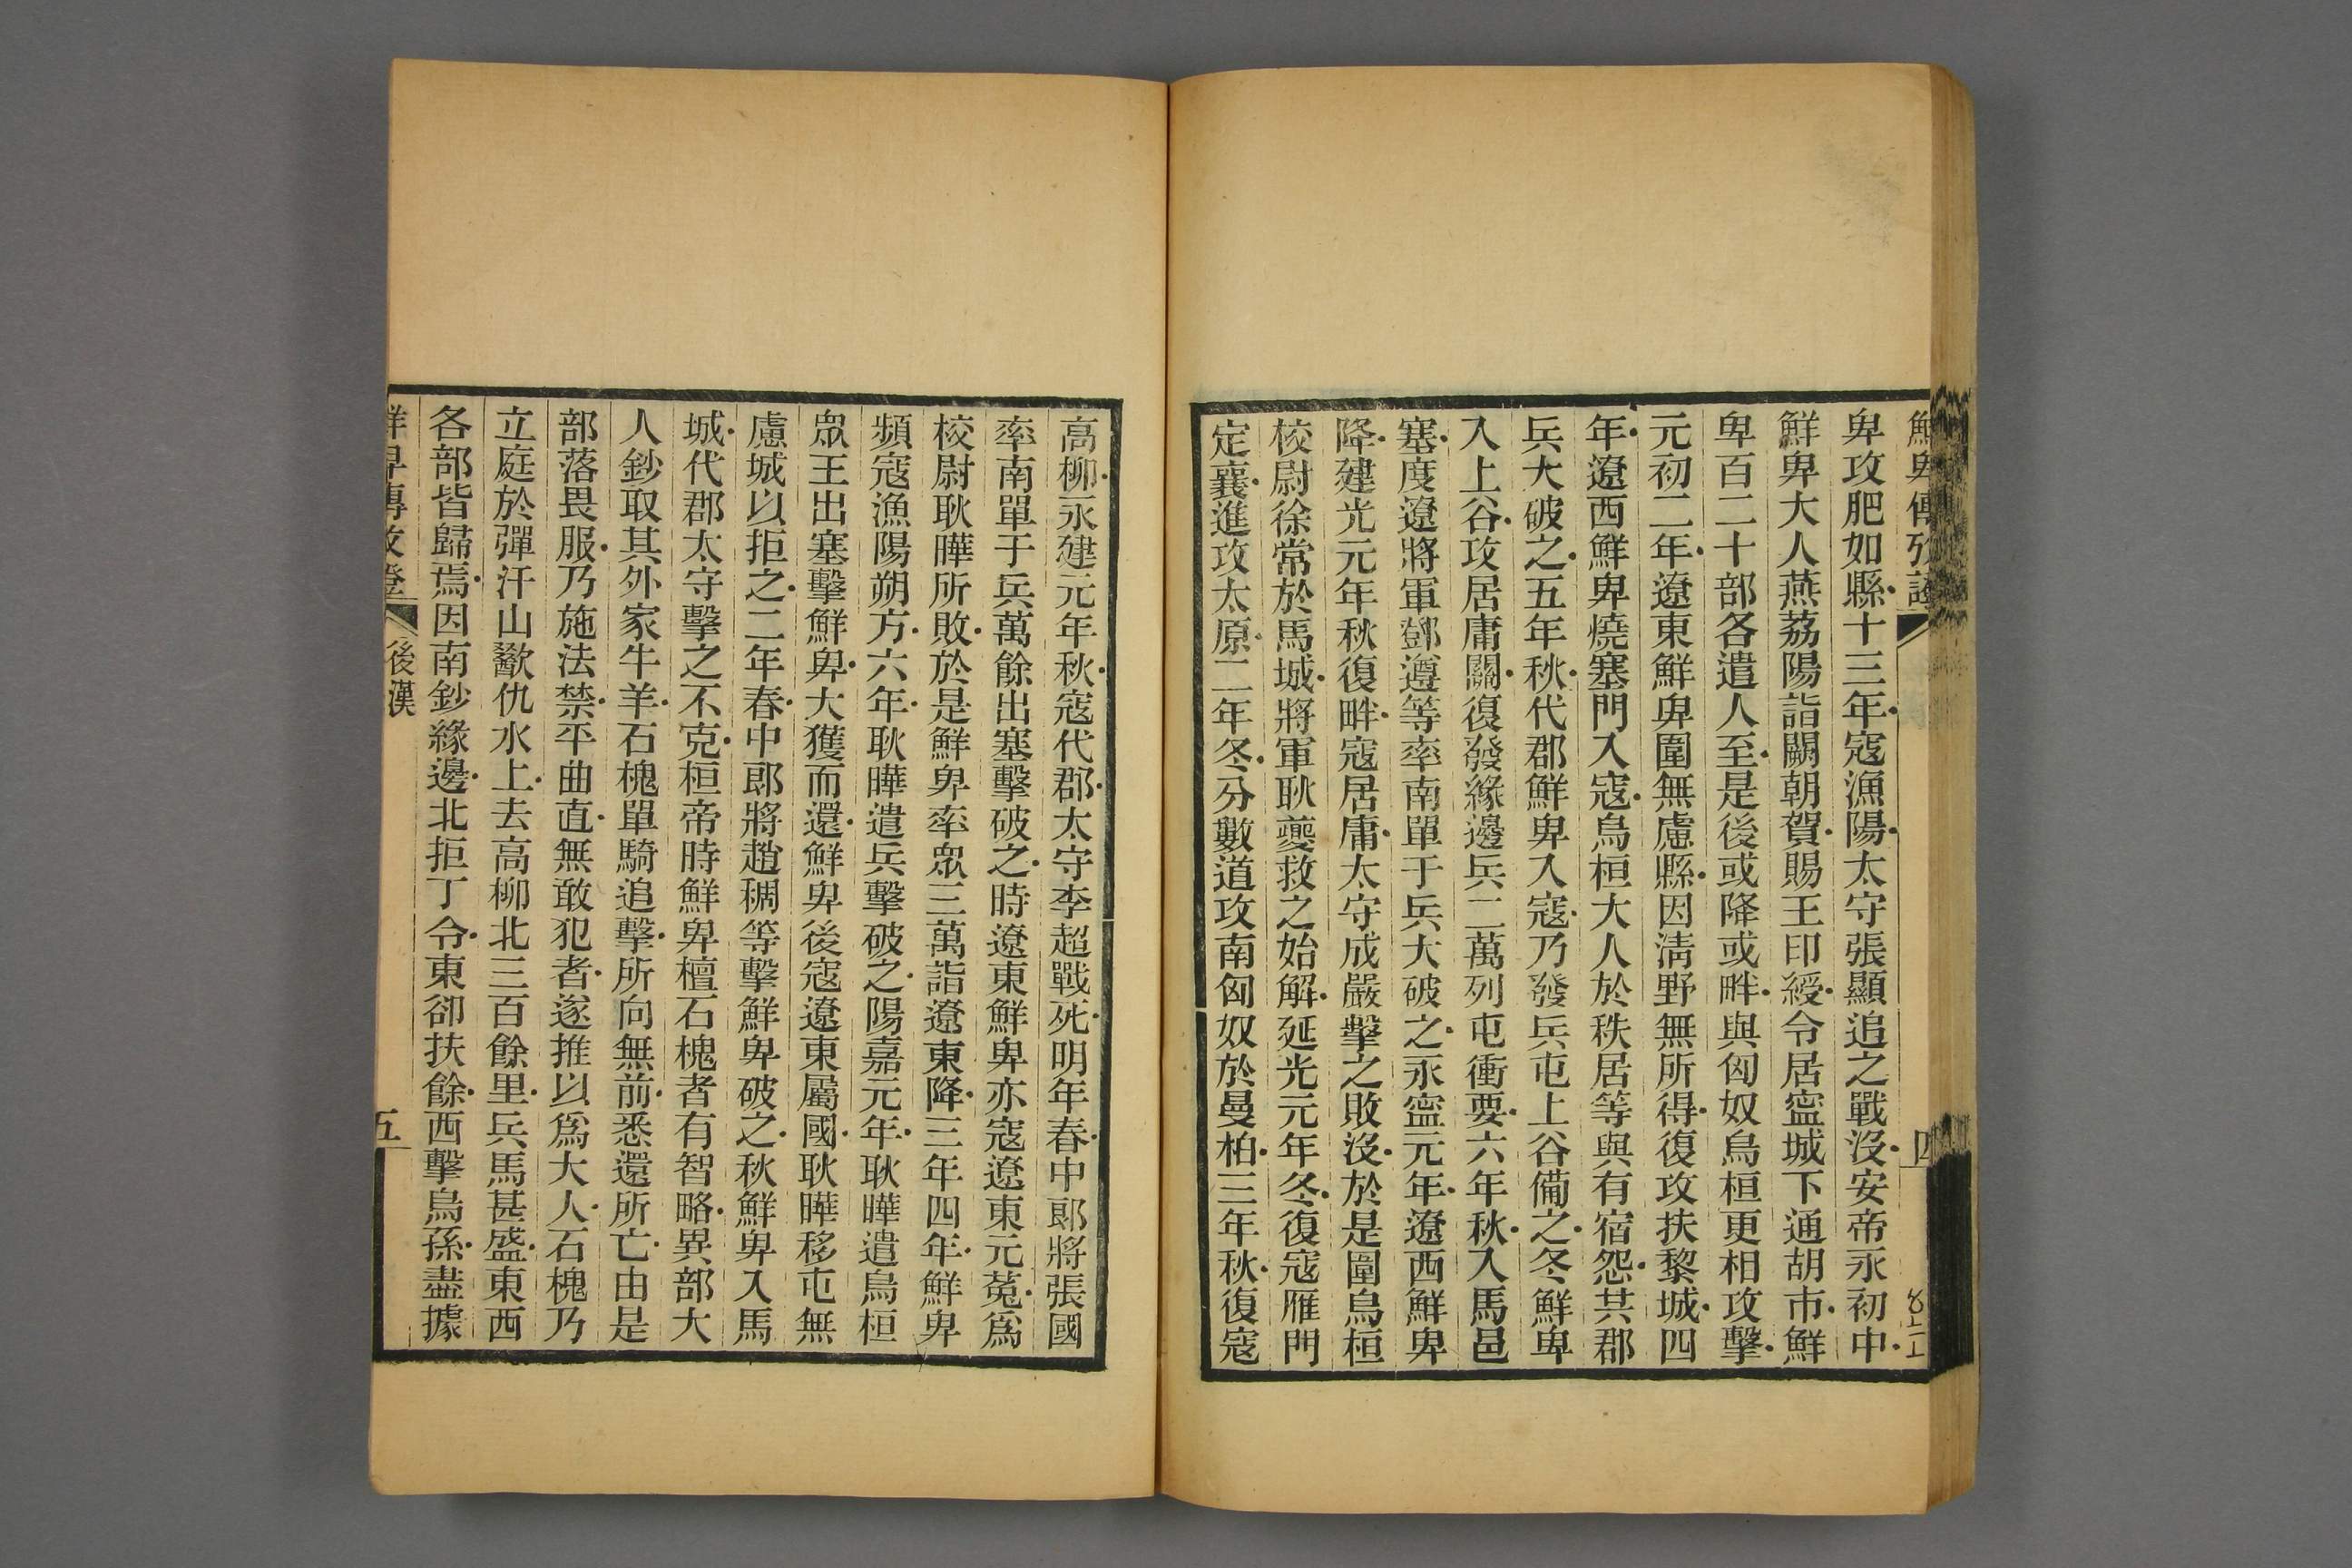 鮮卑傳攷證 四
卑攻肥如縣十三年寇漁陽太守張顯追之戰沒安帝永初中
鮮卑大人燕荔陽詣闕朝賀賜王印綬令居甯城下通胡市鮮
卑百二十部各遣人至是後或降或畔與匈奴烏桓更相攻擊
元初二年遼東鮮卑圍無慮縣因淸野無所得復攻扶黎城四
年遼西鮮卑燒塞門入寇烏桓大人於秩居等與有宿怨其郡
兵大破之五年秋代郡鮮卑入寇乃發兵屯上谷備之冬鮮卑
入上谷攻居庸關復發緣邊兵二萬列屯衝要六年秋入馬邑
塞度遼將軍鄧遵等率南單于兵大破之永甯元年遼西鮮卑
降建光元年秋復畔寇居庸太守成嚴擊之敗沒於是圍烏桓
校尉徐常於馬城將軍耿夔救之始解延光元年冬復寇雁門
定襄進攻太原二年冬分數道攻南匈奴於曼柏三年秋復寇
高柳永建元年秋寇代郡太守李超戰死明年春中郎將張國
率南單于兵萬餘出塞擊破之時遼東鮮卑亦寇遼東元菟爲
校尉耿曄所敗於是鮮卑率眾三萬詣遼東降三年四年鮮卑
頻寇漁陽朔方六年耿曄遣兵擊破之陽嘉元年耿曄遣烏桓
眾王出塞擊鮮卑大獲而還鮮卑後寇遼東屬國耿曄移屯無
慮城以拒之二年春中郎將趙稠等擊鮮卑破之秋鮮卑入馬
城代郡太守擊之不克桓帝時鮮卑檀石槐者有智略異部大
人鈔取其外家牛羊石槐單騎追擊所向無前悉還所亡由是
部落畏服乃施法禁平曲直無敢犯者遂推以爲大人石槐乃
立庭於彈汗山歠仇水上去高柳北三百餘里兵馬甚盛東西
各部皆歸焉因南鈔緣邊北拒丁令東卻扶餘西擊烏孫盡據
鮮卑傳攷證 後漢 五